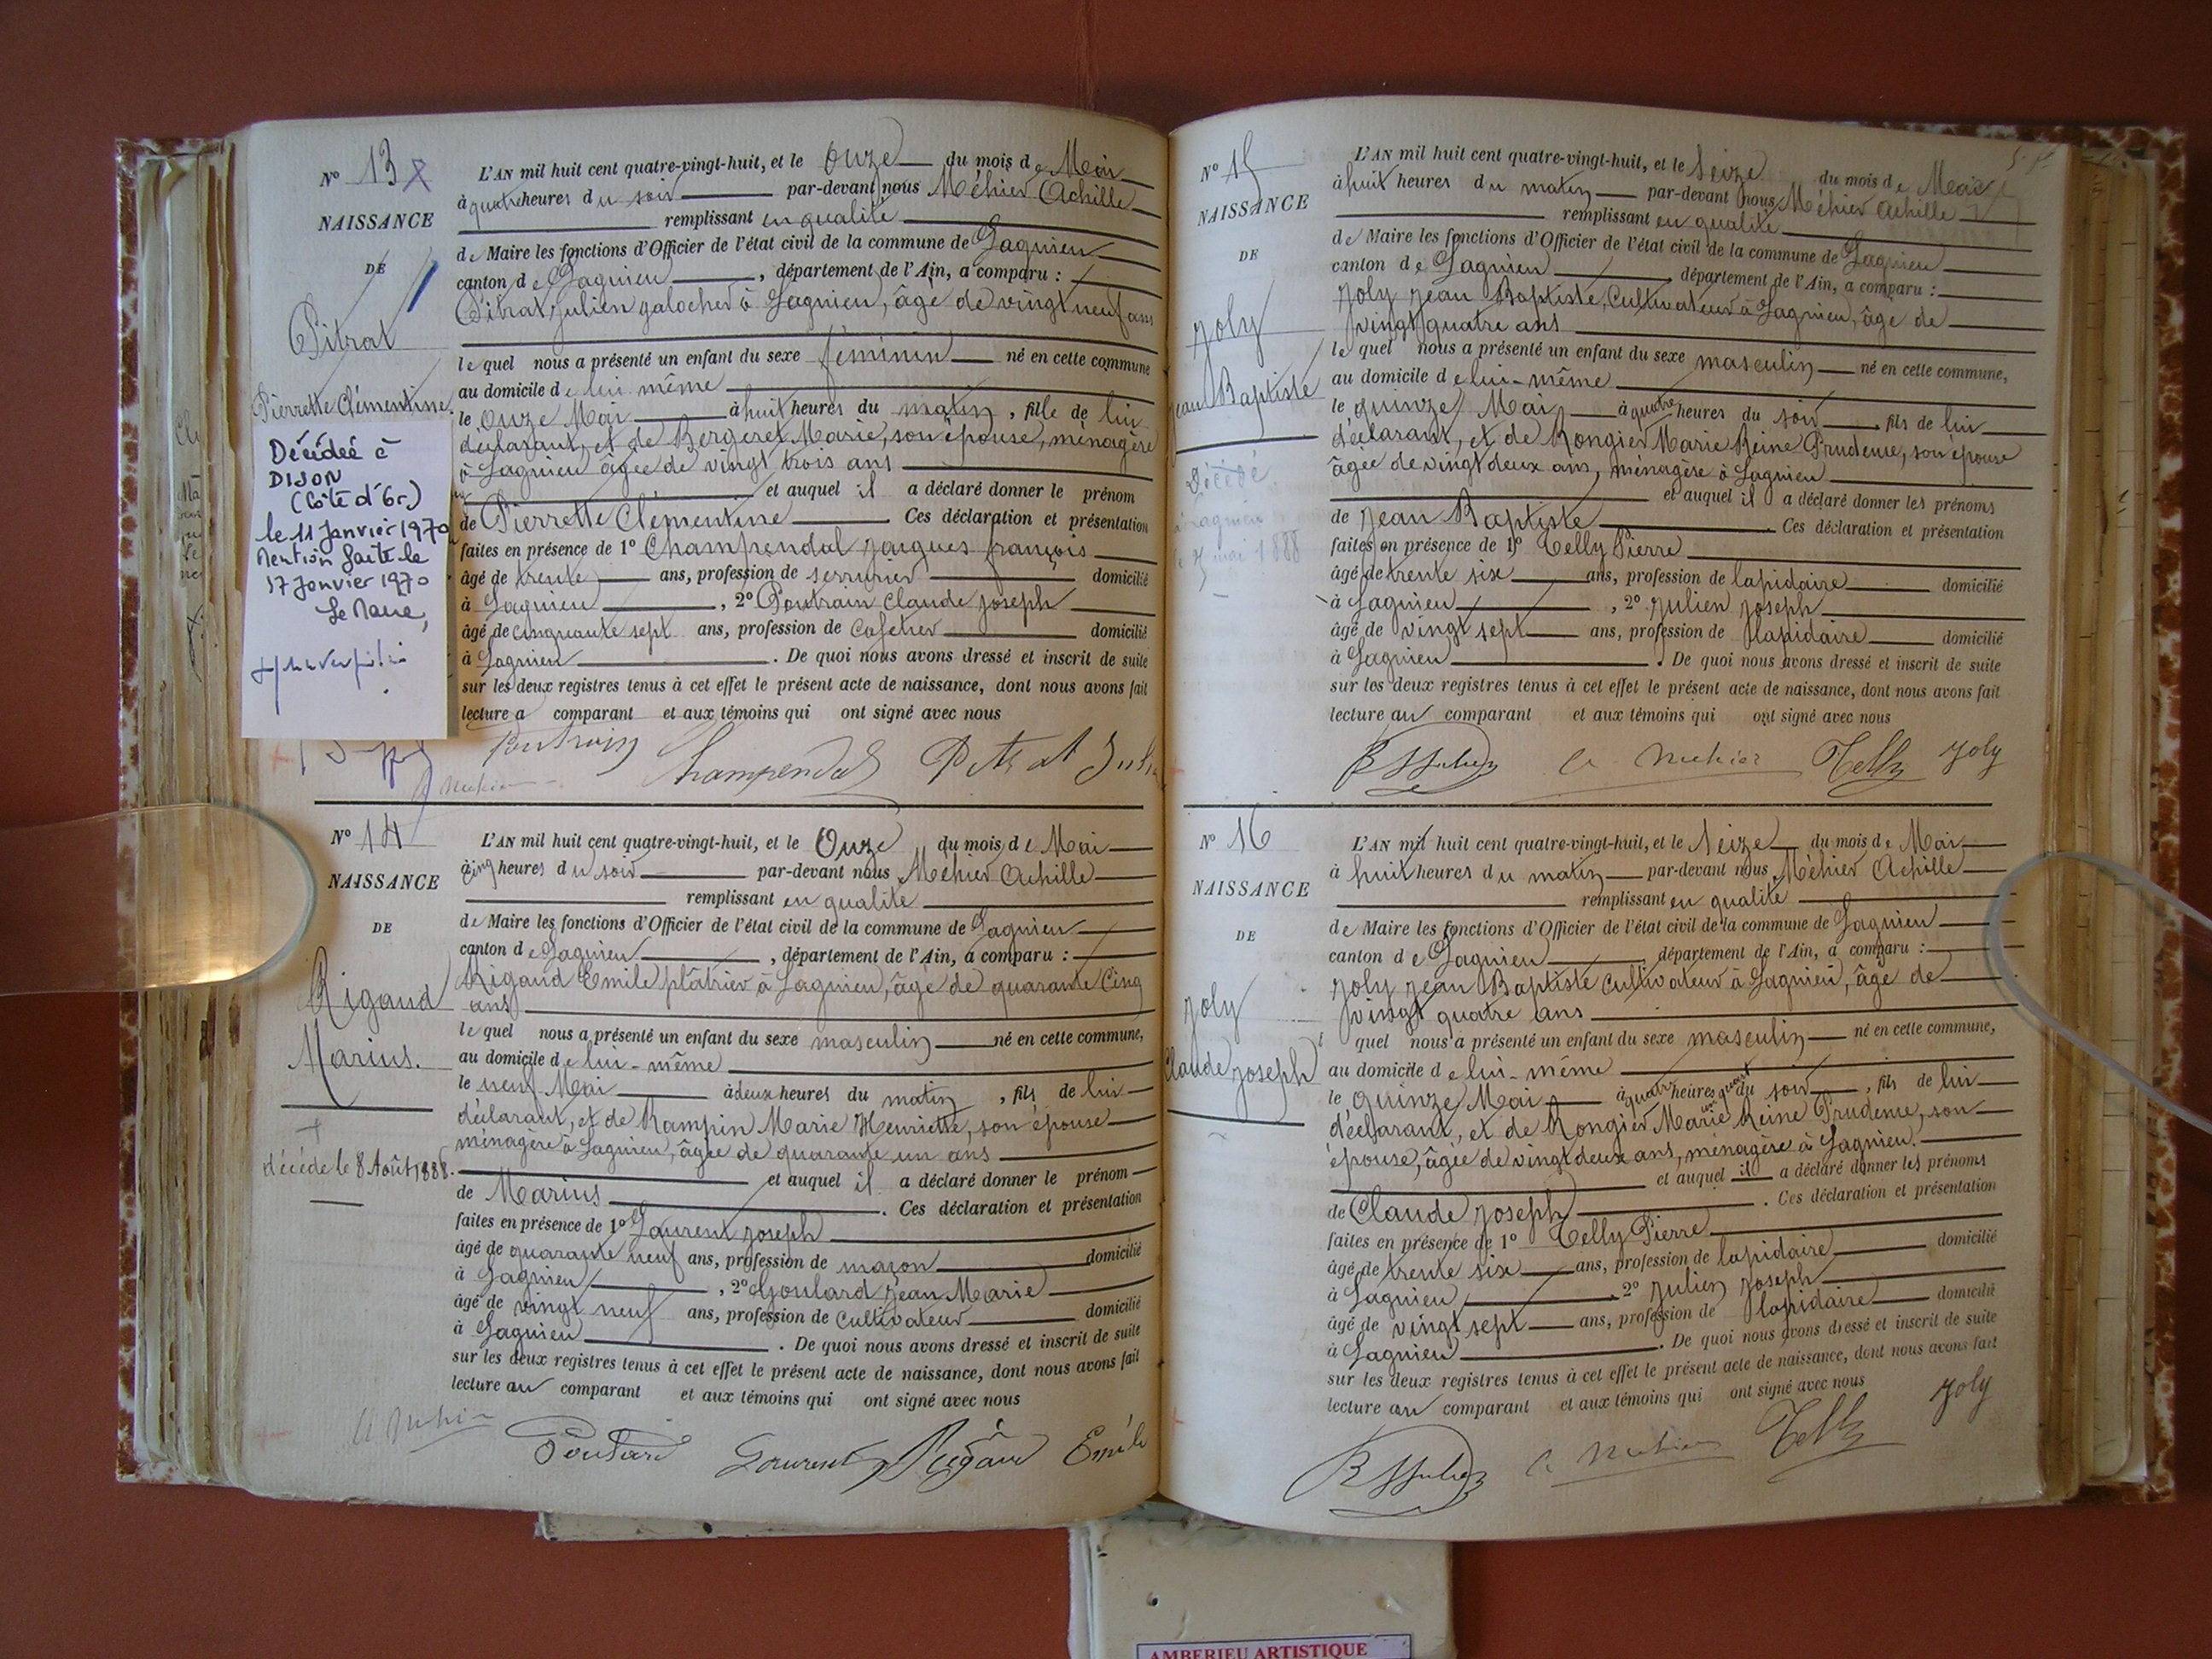 N° 13
NAISSANCE
DE
Pitrat
Pierrette Clémentine
Décédée à
DIJON
(Côte d'Or)
le 11 Janvier 1970
Mention faite le
17 Janvier 1970
Le Maire,
L'AN mil huit cent quatre-vingt-huit, et le Onze du mois de Mai
à quatre heures du soir par-devant nous Méhier Achille
remplissant en qualité
de Maire les fonctions d'Officier de l'état civil de la commune de Lagnieu
canton de Lagnieu, département de l'Ain, a comparu :
Pitrat, Julien galocher à Lagnieu, âgé de vingt neuf ans
le quel nous a présenté un enfant du sexe féminin né en cette commune
au domicile de lui même
le Onze Mai à huit heures du matin, fille de lui
déclarant, et de Bergeret Marie, son épouse, ménagère
à Lagnieu âgée de vingt trois ans
et auquel il a déclaré donner le prénom
de Pierrette Clémentine Ces déclaration et présentation
faites en présence de 1° Champendal Jacques françois
âgé de trente ans, profession de serrurier domicilié
à Lagnieu, 2° Poutrain Claude Joseph
âgé de cinquante sept ans, profession de cafetier domicilié
à Lagnieu. De quoi nous avons dressé et inscrit de suite
sur les deux registres tenus à cet effet le présent acte de naissance, dont nous avons fait
lecture a comparant et aux témoins qui ont signé avec nous
Poutrain Champendal Pitrat Julien
A Mehier
N° 14
NAISSANCE
DE
Rigaud
Marius.
décédé le 8 Août 1888.
L'AN mil huit cent quatre-vingt-huit, et le Onze du mois de Mai
à cinq heures du soir par-devant nous Méhier Achille
remplissant en qualité
de Maire les fonctions d'Officier de l'état civil de la commune de Lagnieu
canton de Lagnieu, département de l'Ain, a comparu :
Rigaud Emile plâtrier à Lagnieu, âgé de quarante Cinq
ans
le quel nous a présenté un enfant du sexe masculin né en cette commune,
au domicile de lui-même
le neuf Mai à deux heures du matin, fils de lui
déclarant, et de Rampin Marie Henriette, son épouse
ménagère à Lagnieu, âgée de quarante un ans
et auquel il a déclaré donner le prénom
de Marius. Ces déclaration et présentation
faites en présence de 1° Laurent Joseph
âgé de quarante neuf ans, profession de maçon domicilié
à Lagnieu, 2° Goulard Jean Marie
âgé de vingt neuf ans, profession de cultivateur domicilié
à Lagnieu. De quoi nous avons dressé et inscrit de suite
sur les deux registres tenus à cet effet le présent acte de naissance, dont nous avons fait
lecture au comparant et aux témoins qui ont signé avec nous
A Mehier Goulard Laurent Rigaud Emile
N° 15
NAISSANCE
DE
Joly
Jean Baptiste
Décédé
à Lagnieu
mai 1888
L'AN mil huit cent quatre-vingt-huit, et le Seize du mois de Mai
à huit heures du matin par-devant nous Méhier Achille
remplissant en qualité
de Maire les fonctions d'Officier de l'état civil de la commune de Lagnieu
canton de Lagnieu, département de l'Ain, a comparu :
Joly Jean Baptiste, Cultivateur à Lagnieu, âgé de
vingt quatre ans
le quel nous a présenté un enfant du sexe masculin né en cette commune,
au domicile de lui-même
le quinze Mai à quatre heures du soir, fils de lui
déclarant, et de Rongier Marie Reine Prudence, son épouse
âgée de vingt deux ans, ménagère à Lagnieu
et auquel il a déclaré donner les prénoms
de Jean Baptiste Ces déclaration et présentation
faites en présence de 1° Telly Pierre
âgé de trente six ans, profession de lapidaire domicilié
à Lagnieu, 2° Julien Joseph
âgé de vingt sept ans, profession de lapidaire domicilié
à Lagnieu. De quoi nous avons dressé et inscrit de suite
sur les deux registres tenus à cet effet le présent acte de naissance, dont nous avons fait
lecture au comparant et aux témoins qui ont signé avec nous
Julien A Mehier Telly Joly
N° 16
NAISSANCE
DE
Joly
Claude Joseph
L'AN mil huit cent quatre-vingt-huit, et le Seize du mois de Mai
à huit heures du matin par-devant nous Méhier Achille
remplissant en qualité
de Maire les fonctions d'Officier de l'état civil de la commune de Lagnieu
canton de Lagnieu, département de l'Ain, a comparu :
Joly Jean Baptiste cultivateur à Lagnieu, âgé de
vingt quatre ans
quel nous a présenté un enfant du sexe masculin né en cette commune,
au domicile de lui-même
le quinze Mai à quatre heures un quart du soir, fils de lui
déclarant, et de Rongier Marie Reine Prudence, son
épouse, âgée de vingt deux ans, ménagère à Lagnieu.
et auquel il a déclaré donner les prénoms
de Claude Joseph. Ces déclaration et présentation
faites en présence de 1° Telly Pierre
âgé de trente six ans, profession de lapidaire domicilié
à Lagnieu, 2° Julien Joseph
âgé de vingt sept ans, profession de lapidaire domicilié
à Lagnieu. De quoi nous avons dressé et inscrit de suite
sur les deux registres tenus à cet effet le présent acte de naissance, dont nous avons fait
lecture au comparant et aux témoins qui ont signé avec nous
Julien A Mehier Telly Joly
AMBERIEU ARTISTIQUE